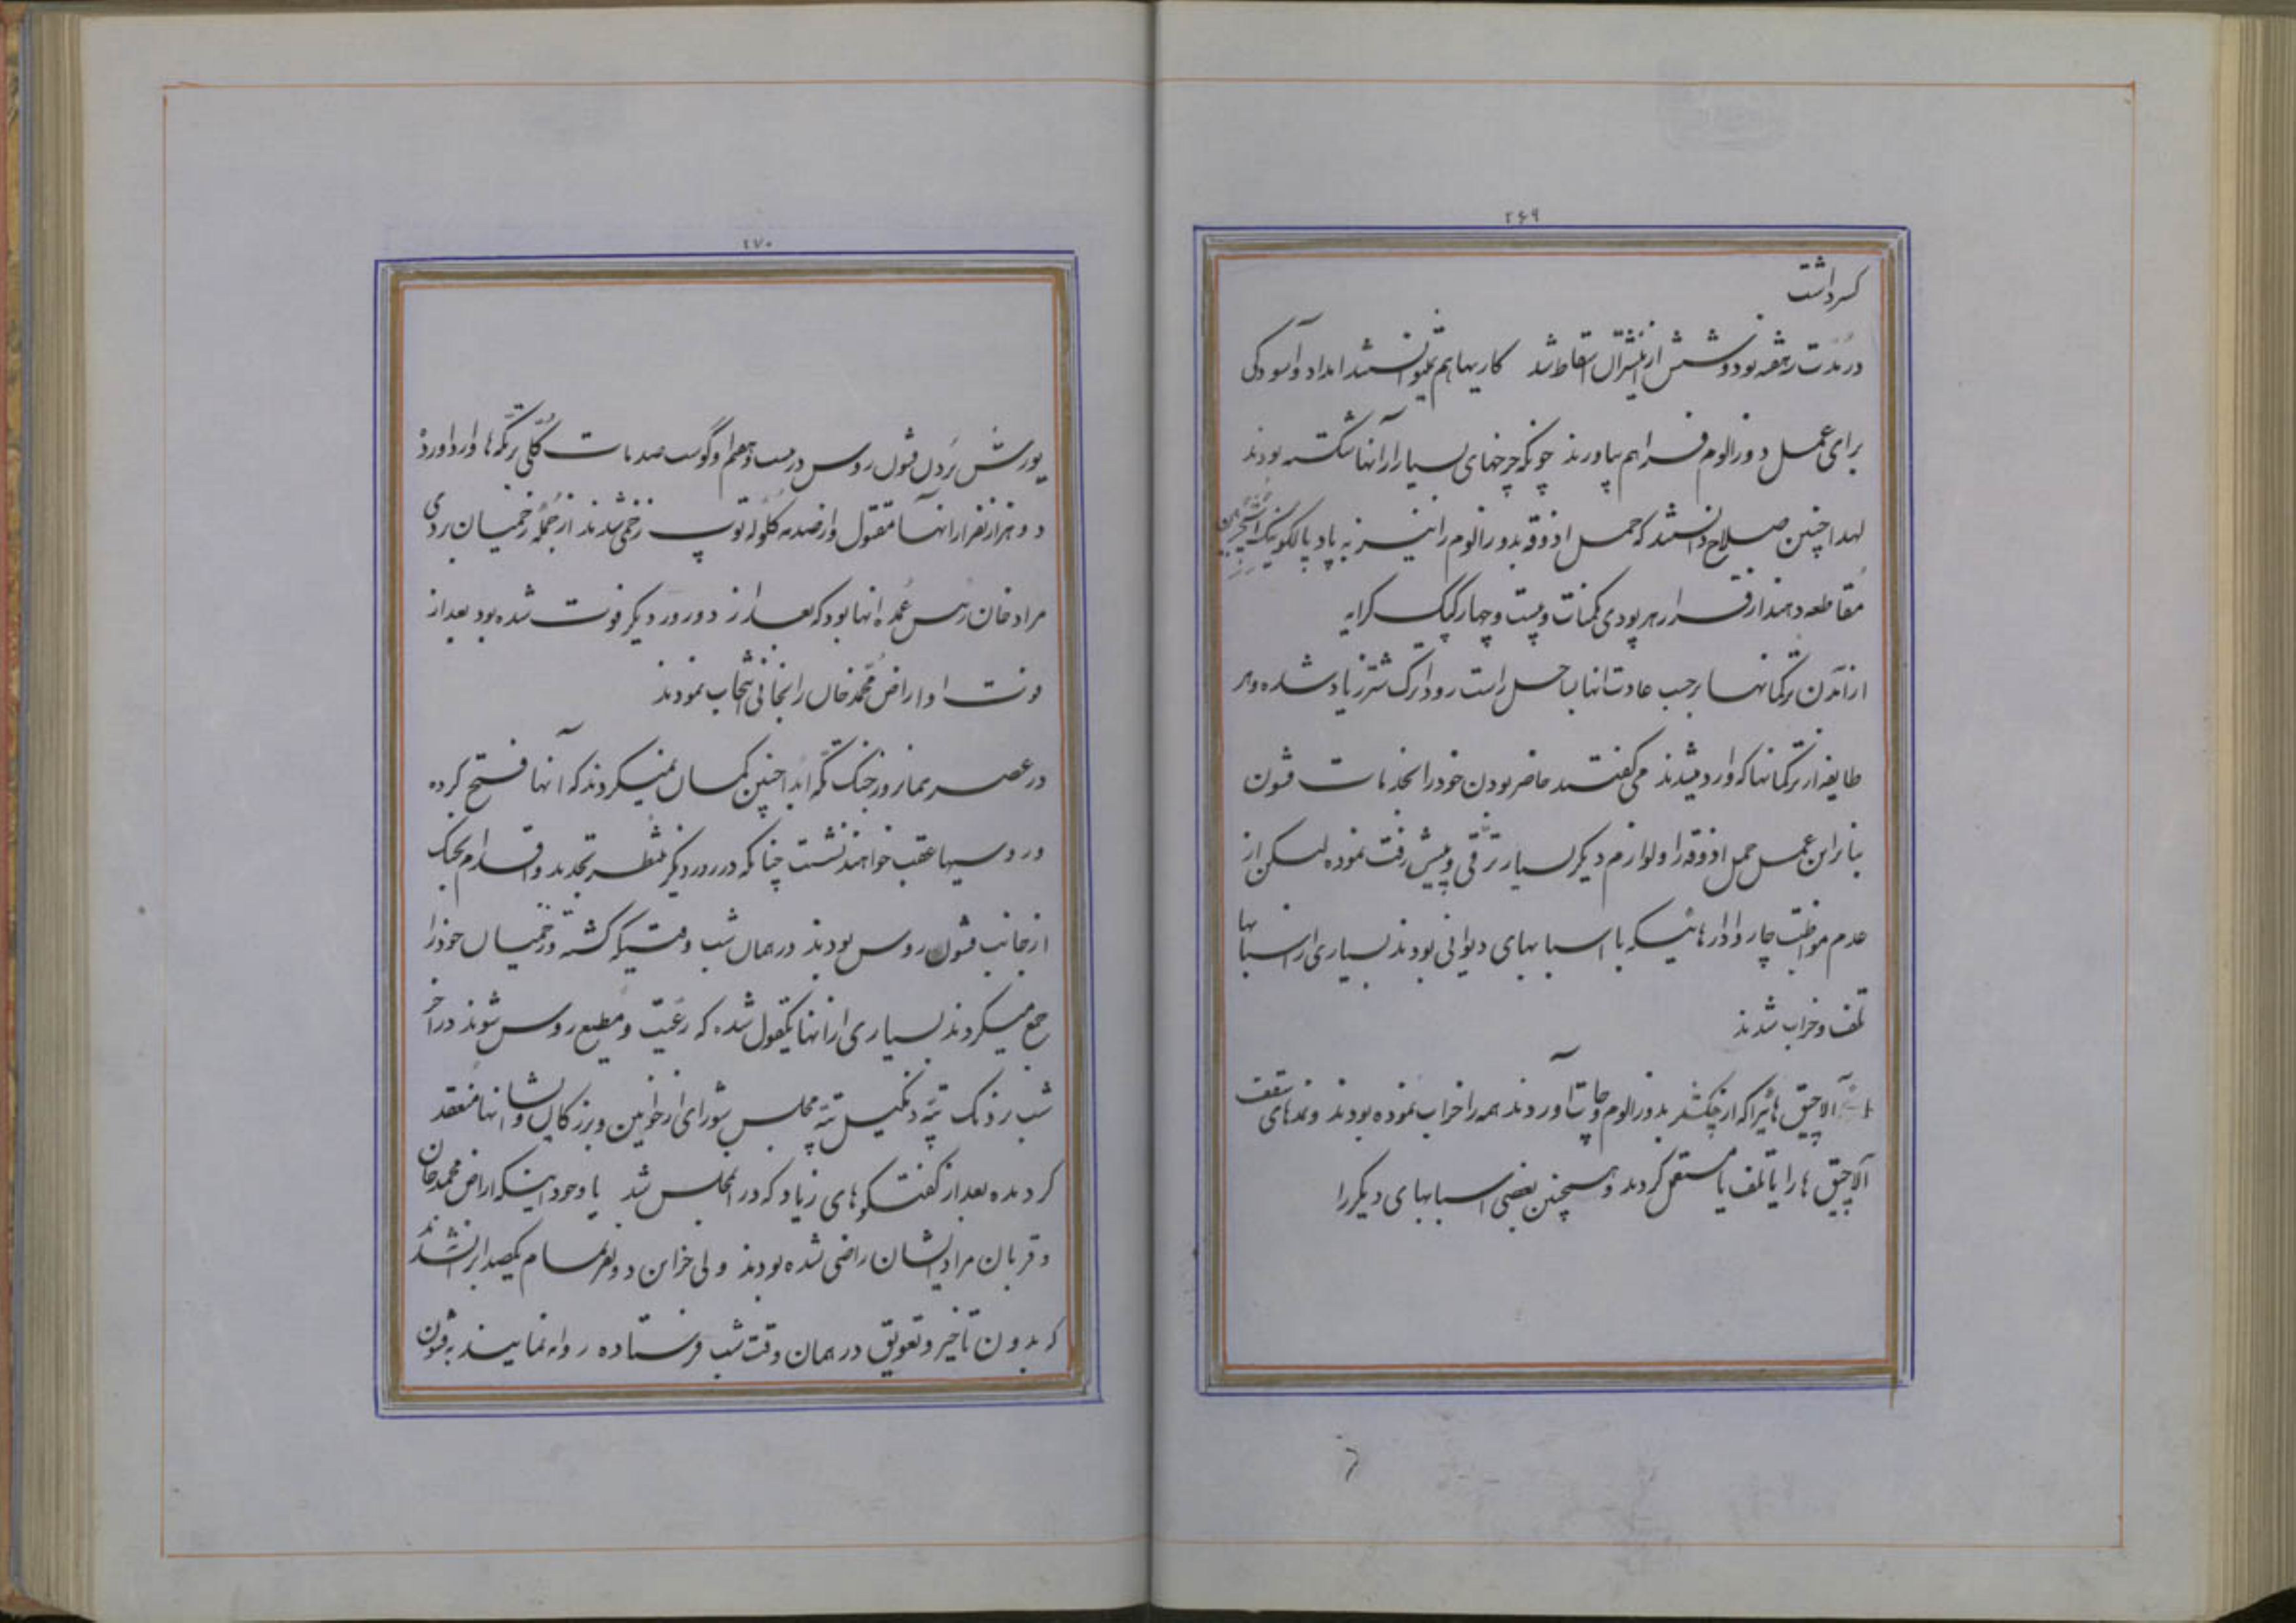 ۲۶۹
کسر داشت
در مدت هفته نود و شش از شتران سقاط شد کاریها هم نمیتوانستند امداد و آسودگی
برای عمل دوزالوم فراهم بیاورند چونکه چرخهای بسیار از آنها شکسته بودند
لهذا چنین صلاح دانستند که حمل اذوقه بدوزالوم را نیز به پادپالکونیک
مقاطعه دهند از قرار هر پودی یکمنات و بیست و چهار کپک کرایه
از آمدن ترکمانها برحسب عادت انها بساحل راست رود اترک شتر زیاد شده و هر
طایفه از ترکمانها که وارد میشدند می گفتند حاضر بودن خود را بخدمات قشون
بنابراین عمل حمل اذوقه و لوازم دیگر بسیار ترقی و پیش رفت نموده لیکن از
عدم مواظبت چاروادارهائیکه با اسبابهای دیوانی بودند بسیاری از اسبابها
تلف و خراب شدند
آلاچیق هائیرا که از چکشلر بدوزالوم و چات آوردند همه را خراب نموده بودند و نمدهای سقف
آلاچیق ها را یا تلف یا مستعمل کردند و همچنین بعضی اسبابهای دیگر را
۲۷۰
یورش بردن قشون روس در بیست و هشتم اوگوست صدمات کلی بر تکه ها وارد اورد
دو هزار نفر از انها مقتول و از صدمه گلوله توپ زخمی شدند از جمله زخمیان بردی
مراد خان رئیس عمده انها بود که بعد از دو روز دیگر فوت شده بود بعد از
فوت او اراض محمد خان را بخانی انتخاب نمودند
در عصر همان روز جنگ تکه ابدا چنین گمان نمیکردند که آنها فتح کرده
و روسیها عقب خواهند نشست چنانکه در روز دیگر منتظر تجدید و اقدام بجنگ
از جانب قشون روس بودند در همان شب وقتیکه کشته و زخمیان خود را
جمع میکردند بسیاری از انها یکقول شده که رعیت و مطیع روس شوند در آخر
شب نزدیک تپه دنگیل تپه مجلس شورای از خوانین و بزرگان و انها منعقد
کردیده بعد از گفتگوهای زیاد که در مجلس شد با وجود اینکه اراض محمد خان
و قربان مراد ایشان راضی شده بودند ولی جز این دو نفر تمام یکصدا بر ان شدند
که بدون تاخیر و تعویق در همان وقت شب فرستاده روانه نمایند به قشون